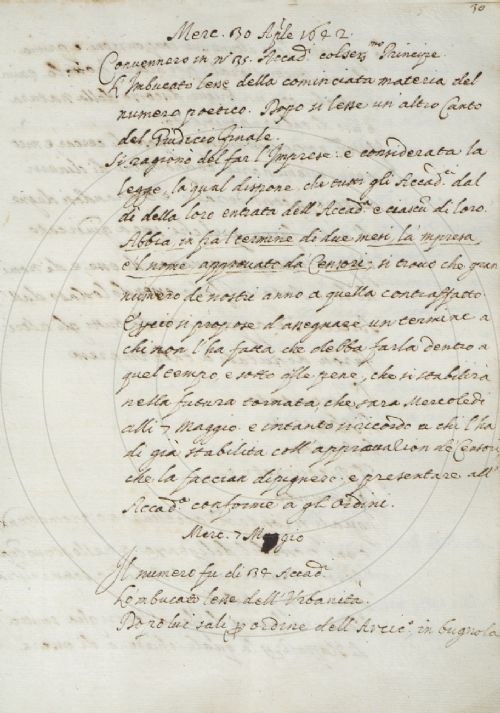 30
Merc. 30 Aple 1642.
Convennero in nº 35. Accadi. col Sermo Principe.
L'Imbucato lesse della cominciata materia del
numero poetico. Dopo si lesse un altro Canto
del Giudicio finale.
Si ragionò del far l'Imprese: e considerata la
legge, la qual dispone, che tutti gli Accadi. dal
dì della loro entrata dell'Accada. e ciascũ di loro.
Abbia in fra'l termine di due mesi, la impresa
e'l nome approvato da Censori, si trovò che gran
numero de nostri anno a quella contraffatto
si propose d'assegnare un termine a
chi non l'ha fatta che debba farla dentro a
quel tempo, e sotto qlle pene, che si stabilirà
nella futura tornata, che sarà Mercoledì
alli 7 Maggio e intanto si ricordò a chi l'ha
di già stabilita coll'approvazion de Censori
che la faccian dipignere e presentare all'
Accada. conforme a gli ordini.
Merc. 7 Maggio
Il numero fu di 34 Accadi.
L'embucato lesse dell'Urbanità.
Dopo lui salì ꝑ ordine dell'Arcico. in bugnola